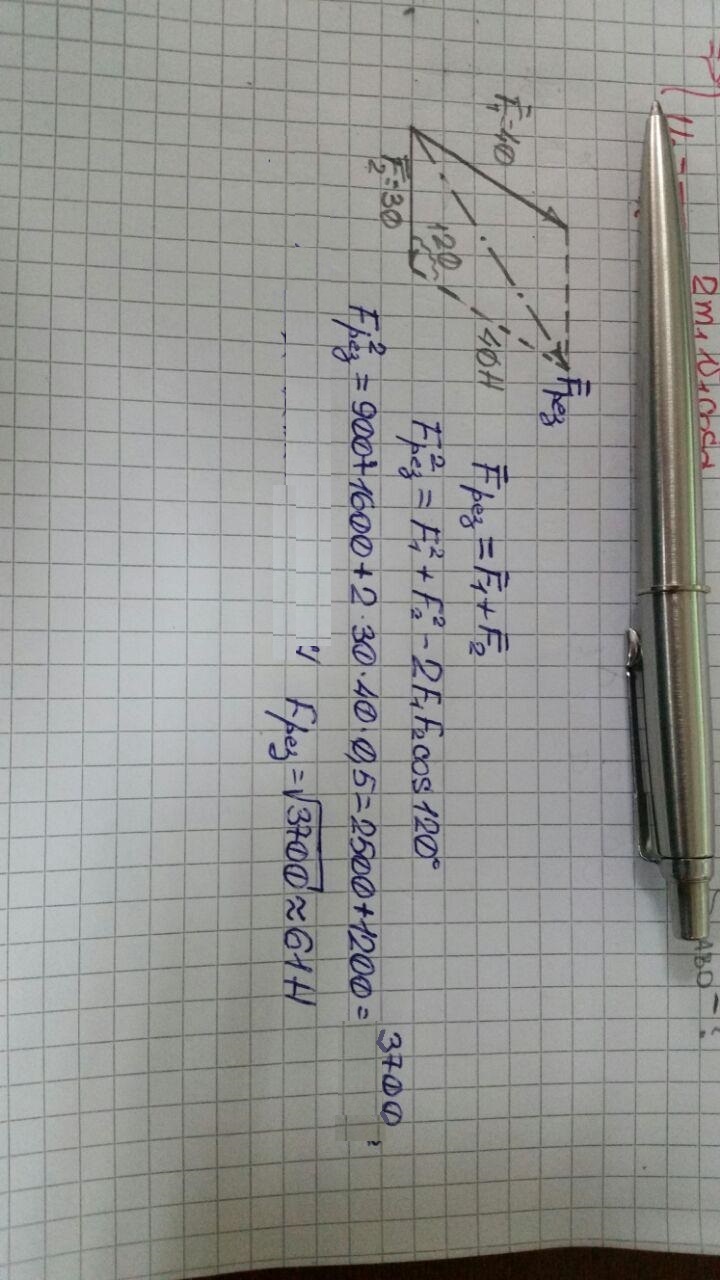 F̅₁=40
F̅₂=30
120
40Н
F̅рез
F̅рез = F̅₁ + F̅₂
F²рез = F₁² + F₂² - 2F₁F₂cos120°
F²рез = 900+1600+2·30·40·0,5=2500+1200=
3700
Fрез = √3700 ≈ 61Н